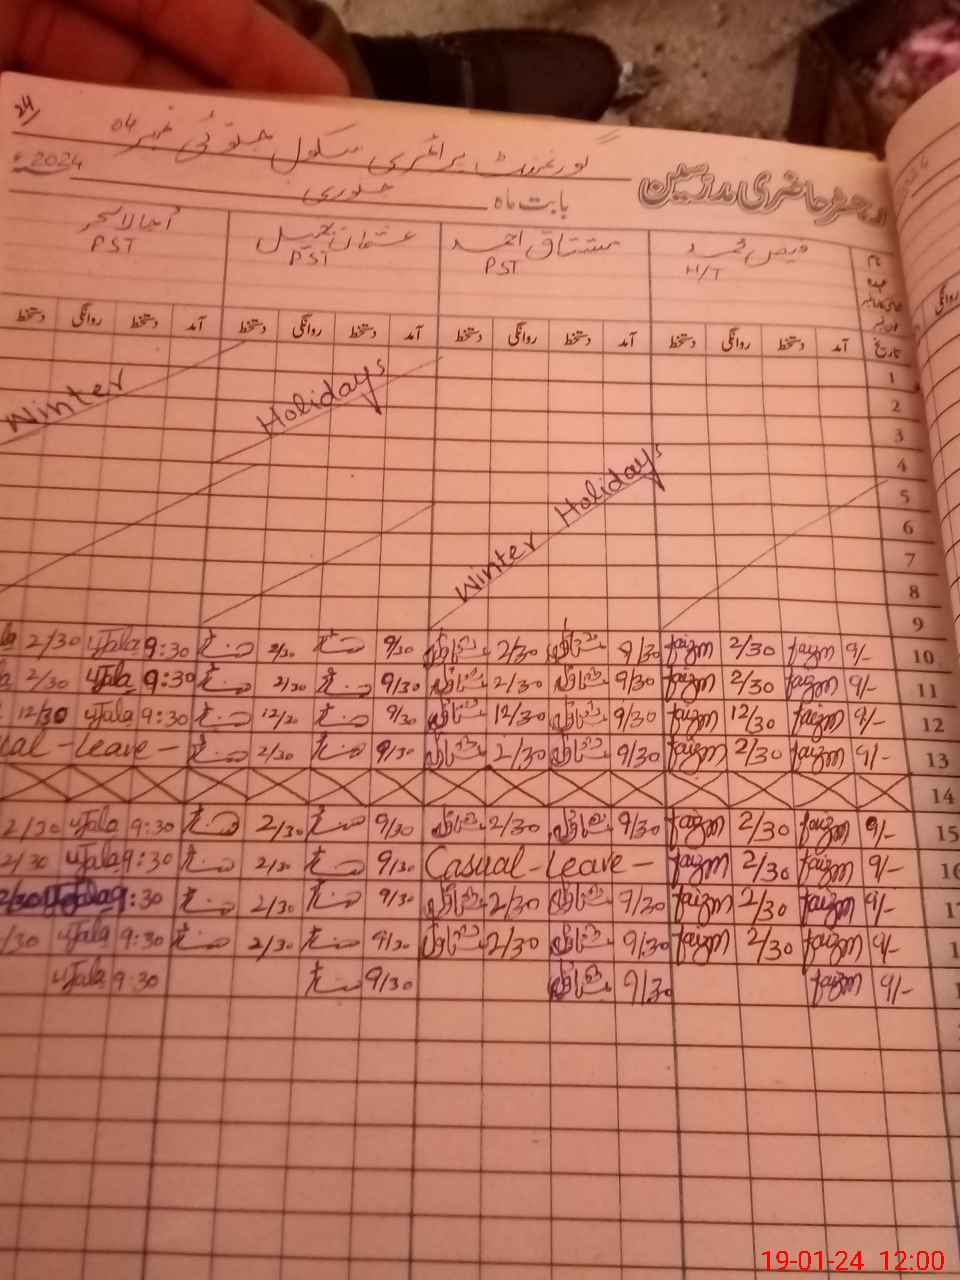 24/
گورنمنٹ پرائمری سکول جتوئی نمبر 04
رجسٹر حاضری مدرسین
بابت ماہ جنوری 2024ء
نام فیض محمد مشتاق احمد عثمان جمیل اجالا سحر
عہدہ H/T PST PST PST
تاریخ آمد دستخط روانگی دستخط آمد دستخط روانگی دستخط آمد دستخط روانگی دستخط آمد دستخط روانگی دستخط
1
2 Winter Holidays
3
4
5 Winter Holidays
6
7
8
9
10 9/- faizm 2/30 faizm 9/30 مشتاق 2/30 مشتاق 9/30 2/30 9:30 Ujala 2/30
11 9/- faizm 2/30 faizm 9/30 مشتاق 2/30 مشتاق 9/30 2/30 9:30 Ujala 2/30
12 9/- faizm 12/30 faizm 9/30 مشتاق 12/30 مشتاق 9/30 12/30 9:30 Ujala 12/30
13 9/- faizm 2/30 faizm 9/30 مشتاق 2/30 مشتاق 9/30 2/30 Leave -
14
15 9/- faizm 2/30 faizm 9/30 مشتاق 2/30 مشتاق 9/30 2/30 9:30 Ujala 2/30
9/- faizm 2/30 faizm Casual - Leave - 9/30 2/30 9:30 Ujala 2/30
9/- faizm 2/30 faizm 9/30 مشتاق 2/30 مشتاق 9/30 2/30 9:30 Ujala 2/30
9/- faizm 2/30 faizm 9/30 مشتاق 2/30 مشتاق 9/30 2/30 9:30 Ujala /30
9/- faizm 9/30 مشتاق 9/30 9:30 Ujala
19-01-24 12:00